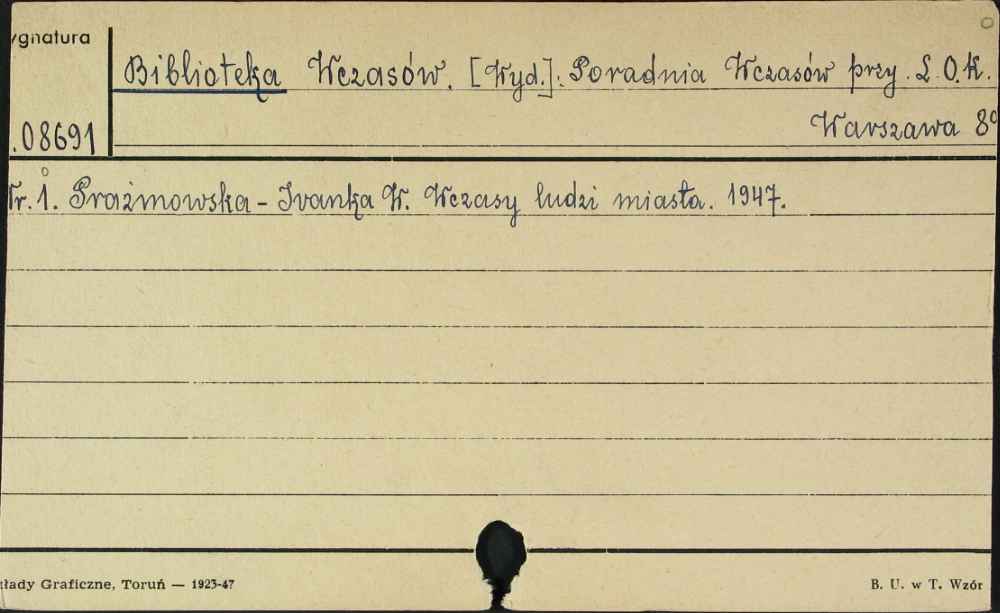 ygnatura
Biblioteka Wczasów. [Wyd.]: Poradnia Wczasów przy. L.O.K.
Warszawa 8°
.08691
Nr. 1. Prażmowska-Ivanka W. Wczasy ludzi miasta. 1947.
kłady Graficzne, Toruń — 1923-47
B. U. w T. Wzór